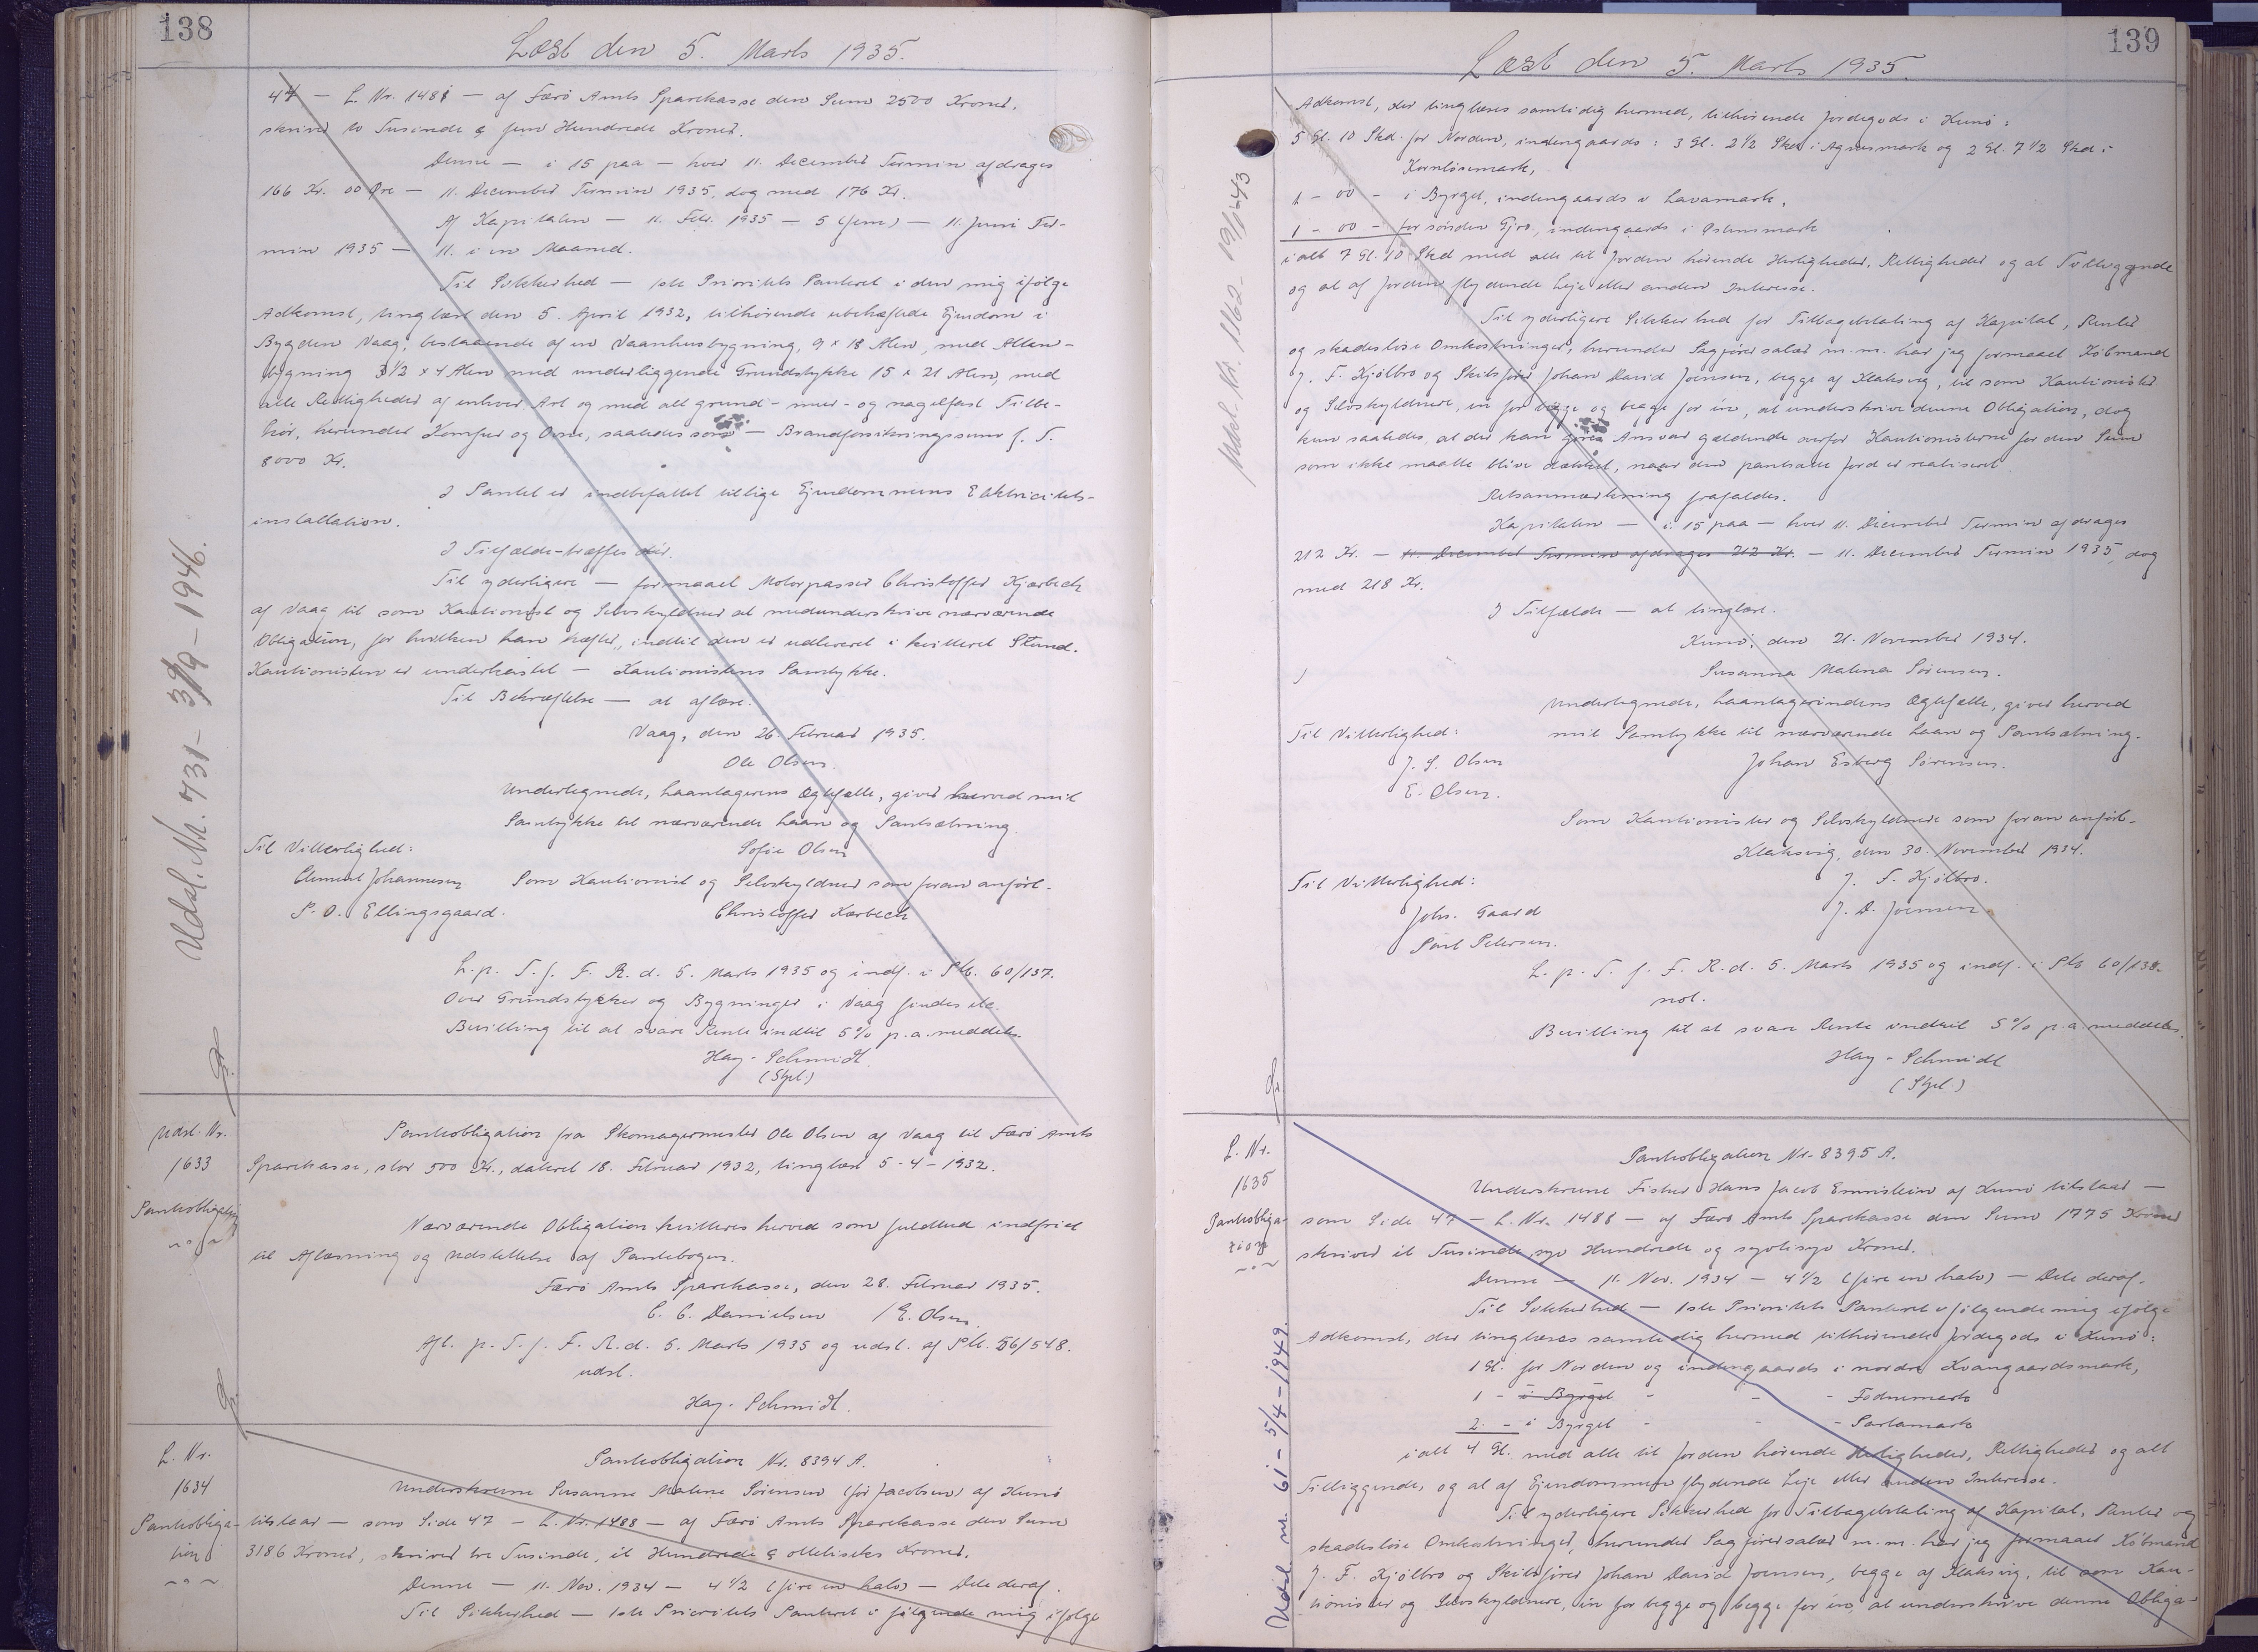 138
Læst den 5. Marts 1935.
44 — L. Nr. 1481 — af Færø Amts Sparekasse den Sum 2500 Kroner,
skriver to Tusinde & fem Hundrede Kroner.
Denne — i 15 paa — hver 11. December Termin afdrages
166 Kr. 00 Øre — 11. December Termin 1935, dog med 176 Kr.
Af Kapitalen — 11. Febr. 1935 — 5 (fem) — 11. Juni Ter-
min 1935 — 11. i en Maaned.
Til Sikkerhed — 1ste Prioritets Panteret i den mig ifølge
Adkomst, tinglæst den 5. April 1932, tilhørende ubehæftede Ejendom i
Bygden Vaag, bestaaende af en Vaanhusbygning, 9 x 18 Alen, med Alten-
bygning 3 1/2 x 4 Alen med underliggende Grundstykke 15 x 21 Alen, med
alle Rettigheder af enhver Art og med alt grund- mur- og nagelfast Tilbe-
hør, herunder Komfur og Ovne, saaledes som — Brandforsikringssum f. T.
8000 Kr.
I Pantet er indbefattet tillige Ejendommens Elektricitets-
installation.
I Tilfælde træffes dér.
Til yderligere — formaaet Motorpasser Christoffer Kjærbech
af Vaag til som Kautionist og Selvskyldner at medunderskrive nærværende
Obligation, for hvilken han hæfter, indtil den er udleveret i kvitteret Stand.
Kautionisten er underkastet — Kautionistens Samtykke.
Til Bekræftelse — at aflæse.
Vaag, den 26. Februar 1935.
Ole Olsen.
Undertegnede, Laantagerens Ægtefælle, giver herved mit
Samtykke til nærværende Laan og Pantsætning.
Til Vitterlighed: Sofie Olsen
Clement Johannesen Som Kautionist og Selvskyldner som foran anført.
P. O. Ellingsgaard. Christoffer Kærbech
L. p. T. f. F. R. d. 5. Marts 1935 og indf. i Pb. 60/137.
Over Grundstykker og Bygninger i Vaag findes etc.
Bevilling til at svare Rente indtil 5% p.a. meddeles.
Hay-Schmidt.
(Stpl.)
Udsl. Nr. 731 - 3/9 - 1946.
Udsl. Nr.
1633
Pantobligation
Pantobligation fra Skomagermester Ole Olsen af Vaag til Færø Amts
Sparekasse, stor 500 Kr., dateret 18. Februar 1932, tinglæst 5-4-1932.
Nærværende Obligation kvitteres herved som fuldtud indfriet
til Aflæsning og Udslettelse af Pantebogen.
Færø Amts Sparekasse, den 28. Februar 1935.
C. C. Danielsen / E. Olsen.
Afl. p. T. f. F. R. d. 5. Marts 1935 og udsl. af Pb. 56/548.
udsl.
Hay-Schmidt.
L. Nr.
1634
Pantobliga-
tion
Pantobligation Nr. 8394 A.
Underskrevne Susanne Malene Sørensen (før Jacobsen) af Kunø
tilstaar — som Side 47 — L. Nr. 1488 — af Færø Amts Sparekasse den Sum
3186 Kroner, skriver tre Tusinde, et Hundrede & ottetiseks Kroner.
Denne — 11. Nov. 1934 — 4 1/2 (fire en halv) — Dele deraf.
Til Sikkerhed — 1ste Prioritets Panteret i følgende mig ifølge
139
Læst den 5. Marts 1935.
Adkomst, der tinglæses samtidig hermed, tilhørende Jordegods i Kunø:
5 Gl. 10 Skd. for Norden, indengaards: 3 Gl. 2 1/2 Skd. i Agnesmark og 2 Gl. 7 1/2 Skd. i
Kornløsemark,
1 - 00 - i Byrget, indengaards i Lavamark,
1 - 00 - for sønden Gjov, indengaards i Ostensmark
ialt 7 Gl. 10 Skd med alle til Jorden hørende Herligheder, Rettigheder og al Tilliggende
og al af Jorden flydende Leje eller anden Interesse.
Til yderligere Sikkerhed for Tilbagebetaling af Kapital, Renter
og skadesløse Omkostninger, herunder Sagførersalær m. m. har jeg formaaet Købmand
J. F. Kjølbro og Skibsfører Johan David Joensen, begge af Klaksvig, til som Kautionister
og Selvskyldnere, en for begge og begge for én, at underskrive denne Obligation, dog
kun saaledes, at der kan gøres Ansvar gældende overfor Kautionisterne for den Sum
som ikke maatte blive dækket, naar den pantsatte Jord er realiseret.
Retsanmærkning frafaldes.
Kapitalen — i 15 paa — hver 11. December Termin afdrages
212 Kr. — 11. December Termin afdrages 212 Kr. — 11. December Termin 1935, dog
med 218 Kr.
I Tilfælde — at tinglæse.
Kunø, den 21. November 1934.
Susanna Malena Sørensen.
Undertegnede, Laantagerindens Ægtefælle, giver herved
Til Vitterlighed: mit Samtykke til nærværende Laan og Pantsætning.
J. S. Olsen Johan Esberg Sørensen.
E. Olsen.
Som Kautionister og Selvskyldnere som foran anført.
Klaksvig, den 30. November 1934.
Til Vitterlighed: J. F. Kjølbro.
Johs. Gaard J. D. Joensen.
Poul Petersen.
L. p. T. f. F. R. d. 5. Marts 1935 og indf. i Pb. 60/138.
not.
Bevilling til at svare Rente indtil 5% p.a. meddeles.
Hay-Schmidt
(Stpl.)
Udsl. Nr. 1162 - 19/1 43
L. Nr.
1635
Pantobliga-
tion
Pantobligation Nr. 8395 A.
Underskrevne Fisker Hans Jacob Ennistein af Kunø tilstaar —
som Side 47 — L. Nr. 1488 — af Færø Amts Sparekasse den Sum 1775 Kroner
skriver et Tusinde, syv Hundrede og syvtisyv Kroner.
Denne — 11. Nov. 1934 — 4 1/2 (fire en halv) — Dele deraf.
Til Sikkerhed — 1ste Prioritets Panteret i følgende mig ifølge
Adkomst, der tinglæses samtidig hermed tilhørende Jordegods i Kunø:
1 Gl. for Norden og indengaards i nordre Kvangaardsmark,
1 - i Byrget - - - Fednemark
2 - i Byrget - - - Sortamark
ialt 4 Gl. med alle til Jorden hørende Herligheder, Rettigheder og alt
Tilliggende, og al af Ejendommen flydende Leje eller anden Interesse.
Til yderligere Sikkerhed for Tilbagebetaling af Kapital, Renter og
skadesløse Omkostninger, herunder Sagførersalær m. m. har jeg formaaet Købmand
J. F. Kjølbro og Skibsfører Johan David Joensen, begge af Klaksvig, til som Kau-
tionister og Selvskyldnere, én for begge og begge for én, at underskrive denne Obliga-
Udsl. nr. 61 - 5/4 - 1949.